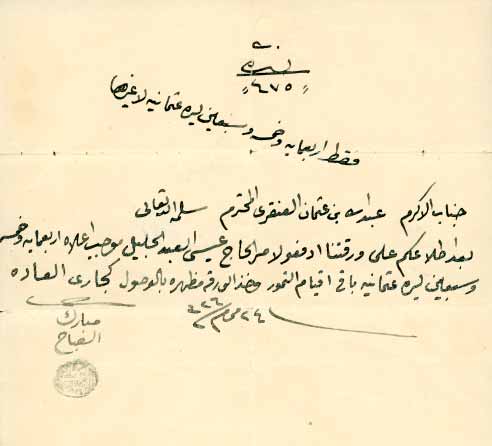 ليره
"٤٧٥"
فقط اربعمايه وخمسه وسبعين ليره عثمانيه لا غيرها
جناب الاكرم عبدالله بن عثمان العنقري المحترم سلمه الله تعالى
بعد اطلاعكم على ورقتنا ادفعوا لامر الحاج عيسى العبد الجليل موجب اعلاه اربعمايه وخمسه
وسبعين ليره عثمانيه باقي اقيام التمور وخذ الورقه مظهره بالوصول كجاري العاده
٢٤ محرم
مبارك
الصباح